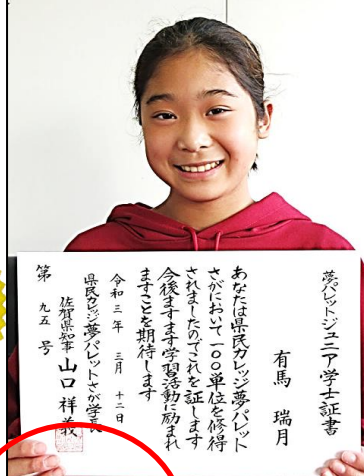 夢パレットジュニア学士証書
有馬 瑞月
あなたは県民カレッジ夢パレット
さがにおいて一〇〇単位を修得
されましたのでこれを証します
今後ますます学習活動に励まれ
ますことを期待します
令和三年 三月 十二日
県民カレッジ夢パレットさが学長
佐賀県知事 山口 祥義
第 九五 号